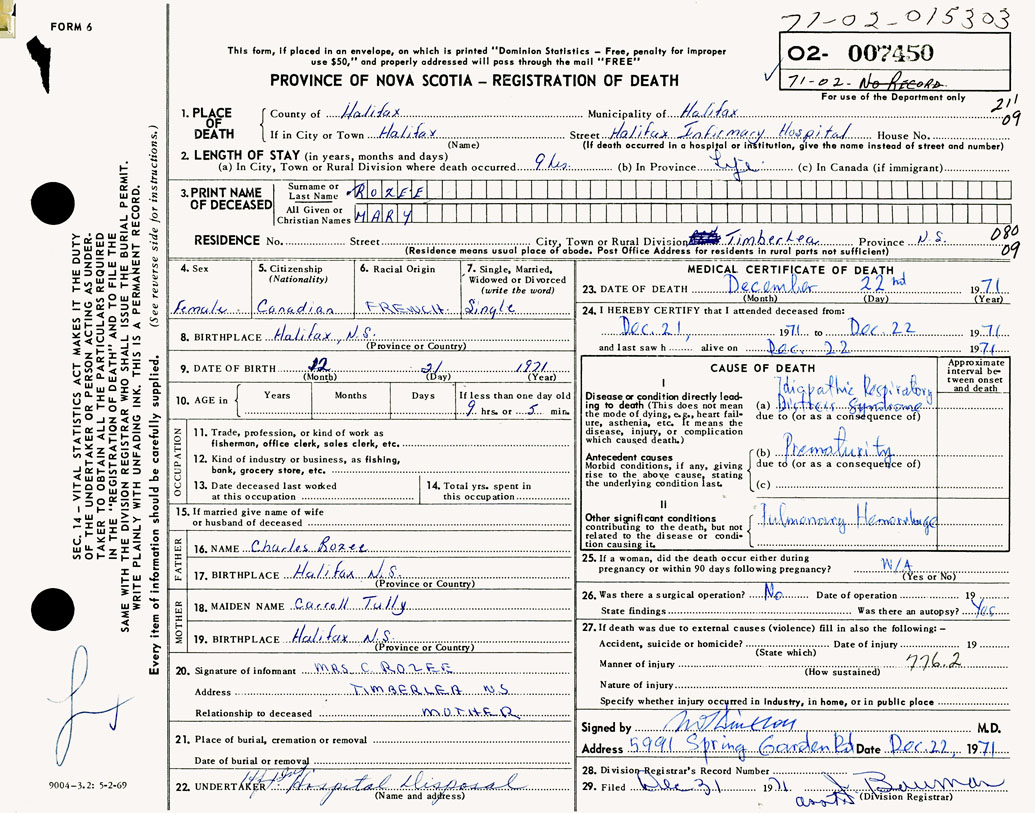 FORM 6
71-02-015303
02- 007450
71-02- No RECORD
For use of the Department only
This form, if placed in an envelope, on which is printed "Dominion Statistics – Free, penalty for improper
use $50," and properly addressed will pass through the mail "FREE"
PROVINCE OF NOVA SCOTIA – REGISTRATION OF DEATH
211
09
1. PLACE OF DEATH
County of Halifax Municipality of Halifax
If in City or Town Halifax Street Halifax Infirmary Hospital House No.
(Name) (If death occurred in a hospital or institution, give the name instead of street and number)
2. LENGTH OF STAY (in years, months and days)
(a) In City, Town or Rural Division where death occurred 9 hrs. (b) In Province Life (c) In Canada (if immigrant)
3. PRINT NAME OF DECEASED
Surname or Last Name ROZEE
All Given or Christian Names MARY
RESIDENCE No. Street City, Town or Rural Division Timberlea Province N.S. 080
(Residence means usual place of abode. Post Office Address for residents in rural parts not sufficient) 09
4. Sex
Female
5. Citizenship
(Nationality)
Canadian
6. Racial Origin
FRENCH
7. Single, Married,
Widowed or Divorced
(write the word)
Single
8. BIRTHPLACE Halifax, N.S.
(Province or Country)
9. DATE OF BIRTH 12 21 1971
(Month) (Day) (Year)
10. AGE in
Years Months Days If less than one day old
9 hrs. or 5 min.
OCCUPATION
11. Trade, profession, or kind of work as
fisherman, office clerk, sales clerk, etc.
12. Kind of industry or business, as fishing,
bank, grocery store, etc.
13. Date deceased last worked
at this occupation
14. Total yrs. spent in
this occupation
15. If married give name of wife
or husband of deceased
FATHER
16. NAME Charles Rozee
17. BIRTHPLACE Halifax N.S.
(Province or Country)
MOTHER
18. MAIDEN NAME Carroll Tully
19. BIRTHPLACE Halifax N.S.
(Province or Country)
20. Signature of informant MRS. C. ROZEE
Address TIMBERLEA N.S
Relationship to deceased MOTHER
21. Place of burial, cremation or removal
Date of burial or removal
22. UNDERTAKER Hospital Disposal
(Name and address)
MEDICAL CERTIFICATE OF DEATH
23. DATE OF DEATH December 22nd 1971
(Month) (Day) (Year)
24. I HEREBY CERTIFY that I attended deceased from:
Dec. 21, 1971 to Dec. 22 1971
and last saw h alive on Dec. 22 1971
CAUSE OF DEATH
Approximate
interval between onset
and death
I
Disease or condition directly leading to death (This does not mean
the mode of dying, e.g., heart failure, asthenia, etc. It means the
disease, injury, or complication
which caused death.)
Idiopathic Respiratory
(a) Distress Syndrome
due to (or as a consequence of)
Antecedent causes
Morbid conditions, if any, giving
rise to the above cause, stating
the underlying condition last.
(b) Prematurity
due to (or as a consequence of)
(c)
II
Other significant conditions
contributing to the death, but not
related to the disease or condition causing it.
Pulmonary Hemorrhage
25. If a woman, did the death occur either during
pregnancy or within 90 days following pregnancy? N/A
(Yes or No)
26. Was there a surgical operation? No Date of operation 19
State findings Was there an autopsy? Yes
27. If death was due to external causes (violence) fill in also the following: –
Accident, suicide or homicide? Date of injury 19
(State which)
Manner of injury 776.2
(How sustained)
Nature of injury
Specify whether injury occurred in Industry, in home, or in public place
Signed by M.D.
Address 5991 Spring Garden Rd Date Dec. 22, 1971
28. Division Registrar's Record Number
29. Filed Dec 31 1971 J Bauman
(Division Registrar)
SEC. 14 – VITAL STATISTICS ACT MAKES IT THE DUTY
OF THE UNDERTAKER OR PERSON ACTING AS UNDERTAKER TO OBTAIN ALL THE PARTICULARS REQUIRED
IN THE "REGISTRATION OF DEATH" AND TO FILE THE
SAME WITH THE DIVISION REGISTRAR WHO SHALL ISSUE THE BURIAL PERMIT.
WRITE PLAINLY WITH UNFADING INK. THIS IS A PERMANENT RECORD.
Every item of information should be carefully supplied. (See reverse side for instructions.)
9004-3.2: 5-2-69